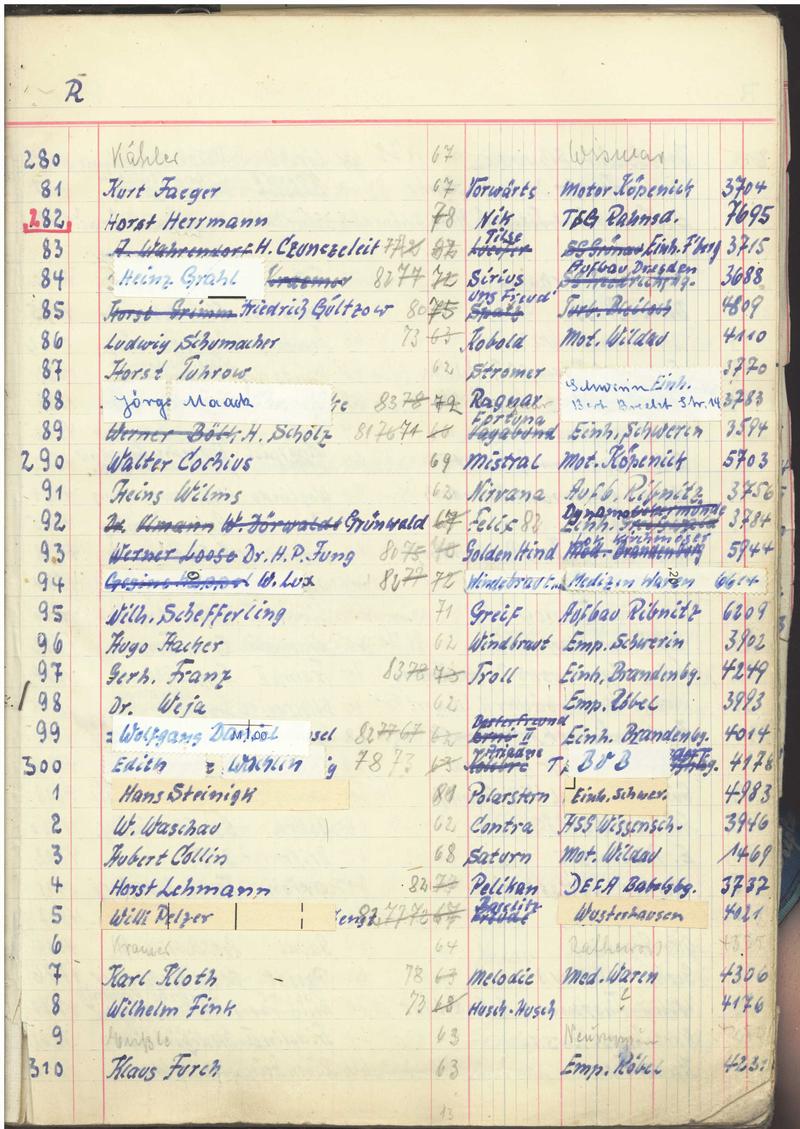 R
280 Kähler 67 Wismar
81 Kurt Jaeger 67 Vorwärts Motor Köpenick 3704
282 Horst Herrmann 78 Nik TSG Rahnsd. 7695
83 A. Wahrendorf H. Czunszeleit Tilse Einh. F'berg 3715
84 Heinz Grahl Kraemer 8277 72 Sirius Aufbau Dresden 3688
85 Horst Grimm Friedrich Gültzow 80 75 Uns Freud' Spatz 4809
86 Ludwig Schumacher 73 63 Kobold Mot. Wildau 4110
87 Horst Tuhrow 62 Stromer 3770
88 Jörge Maack ke 83 78 72 Ragnar Schwerin Einh. Bert Brecht Str. 14 3783
89 Werner Böl H. Scholz 81 76 71 Fortuna Vagabund Einh. Schwerin 3594
290 Walter Cochius 69 Mistral Mot. Köpenick 5703
91 Heinz Wilms 62 Nirvana Aufb. Ribnitz 3756
92 Dr. Ulmann W. Dörwaldt Grünwald 67 Felix 82 Einh. Dynamo 3784
93 Werner Loose Dr. H. P. Jung 80 75 Golden Hind Med. Brandenburg Kirchmöser 5944
94 W. Lux 82 72 Windsbraut Medizin Waren 6614
95 Wilh. Schefferling 71 Greif Aufbau Ribnitz 6209
96 Hugo Hacker 62 Windbraut Emp. Schwerin 3902
97 Gerh. Franz 83 78 73 Troll Einh. Brandenbg. 4249
98 Dr. Weja 62 Emp. Röbel 3993
99 Wolfgang sel 82 77 67 62 II Einh. Brandenbg. 4014
300 Edith Wachlin g 78 73 63 Ariadne BVB 4178
1 Hans Steinigk 81 Polarstern Einh. Schwer. 4983
2 W. Waschau 62 Contra HSG Wissensch. 3946
3 Hubert Collin 68 Saturn Mot. Wildau 1469
4 Horst Lehmann 82 77 Pelikan DEFA Babelsbg. 3737
5 Willi Pelzer 82 77 72 67 Freude Wusterhausen 4021
6 Kramer 64 Rathenow
7 Karl Kloth 78 63 Melodie Med. Waren 4306
8 Wilhelm Fink 73 68 Husch-Husch ? 4176
9 63 Neuruppin
310 Klaus Furch 63 Emp. Röbel 4231
13